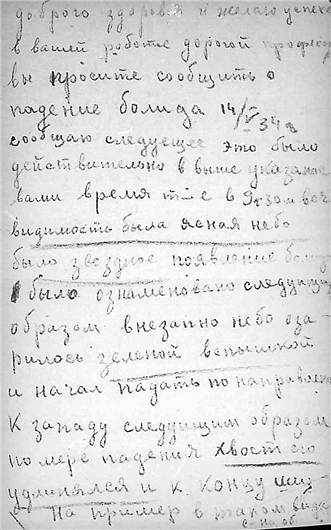 доброго здоровья и желаю успеха
в вашей роботе дорогой професор
вы просите сообщить о
падение болида 14/V 34 г
сообщаю следуещее это было
действительно в выше указаное
вами время т-е в
видимость была ясная небо
было звездное появление болида
было ознаменовано следующим
образом внезапно небо оза-
рилось зеленой вспышкой
и начал падать по направлен
К западу следующим образом
по мере падения хвост его
удлинялся и к концу
На пример в таком виде